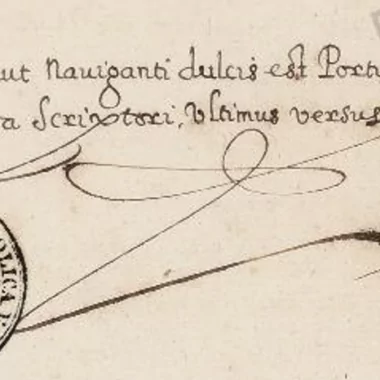 ut Nauiganti dulcis est Portu
a Scriptori, Vltimus versus
OLICA